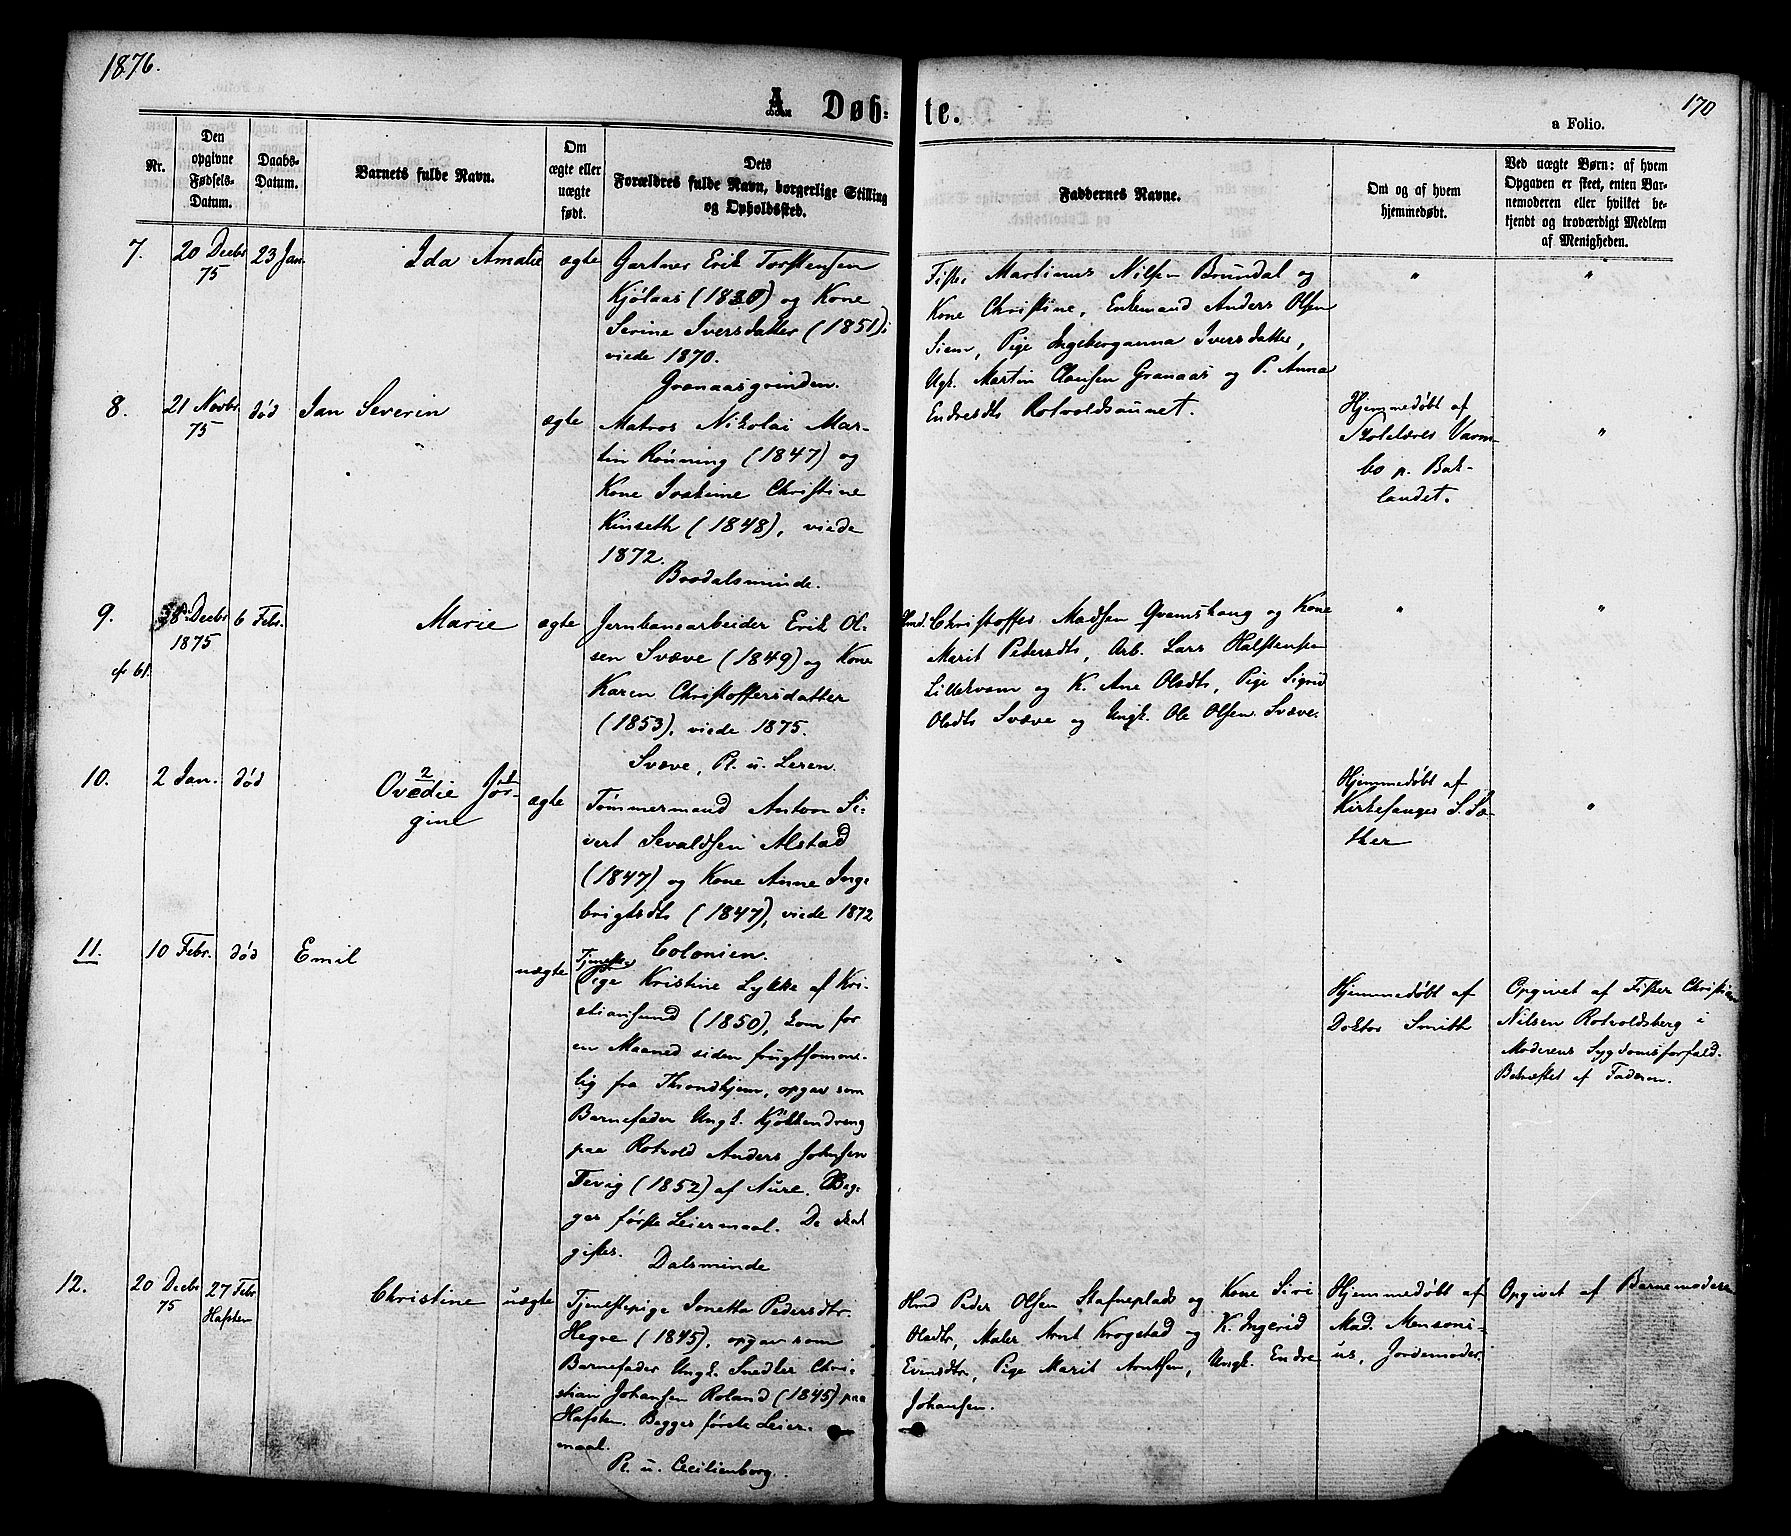 1876.
170
A. Døbte.
a Folio.
Nr.
Den opgivne Fødsels-Datum.
Daabs-Datum.
Barnets fulde Navn.
Om ægte eller uægte født.
Dets Forældres fulde Navn, borgerlige Stilling og Opholdssted.
Faddernes Navne.
Om og af hvem hjemmedøbt.
Ved uægte Børn: af hvem Opgaven er skeet, enten Barnemoderen eller hvilket bekjendt og troværdigt Medlem af Menigheden.
7.
20 Decbr
75
23 Jan.
Ida Amalie
ægte
Gartner Erik Torstensen
Kjølaas (1830) og Kone
Serine Iversdatter (1851),
viede 1870.
Granaasgrinden.
Fisker Martinus Nilsen Brundal og
Kone Christine, Enkemand Anders Olsen
Siem, Pige Ingeberganna Iversdatter,
Ugk. Martin Clausen Granaas og P. Anna
Endresdtr Rotvoldsaunet.
"
"
8.
21 Novbr.
75
død
Jan Severin
ægte
Matros Nikolai Mar-
tin Rønning (1847) og
Kone Joakime Christine
Kinseth (1848), viede
1872.
Brodalsminde.
Hjemmedøbt af
Skolelærer Varm-
bo p. Bak-
landet.
"
9.
28 Decbr
1875
cf 61.
6 Febr.
Marie
ægte
Jernbanearbeider Erik Ol-
sen Svæve (1849) og Kone
Karen Christoffersdatter
(1853), viede 1875.
Svæve, Pl. u. Leren.
Hmd. Christoffer Madsen Qvamshaug og Kone
Marit Pedersdtr, Arb. Lars Halstensen
Lillekvam og K. Ane Olsdtr, Pige Sigrid
Olsdtr Svæve og Ungk. Ole Olsen Svæve.
"
"
10.
2 Jan.
død
2 1
Ovedie Jør-
gine
ægte
Tømmermand Anton Si-
vert Sevaldsen Alstad
(1847) og Kone Anne Inge-
brigtsdtr (1847), viede 1872
Colonien.
Hjemmedøbt af
Kirkesanger S. Sæ-
ther
"
11.
10 Febr.
død
Emil
uægte
Tjeneste
Pige Kristine Lykke af Kri-
stiansund (1850), kom for
en Maaned siden frugtsomme-
lig fra Throndhjem, opgav som
Barnefader Ungk. Kjøkkendreng
paa Rotvold Anders Johnsen
Tevig (1852) af Aure. Beg-
ges første Leiermaal. De skal
giftes.
Dalsminde
Hjemmedøbt af
Doktor Smith
Opgivet af Fisker Christian
Nilsen Rotvoldsberg i
Moderens Sygdomsforfald.
Bekræftet af Faderen.
12.
20 Decbr
75
27 Febr
Hafsten
Christine
uægte
Tjenestepige Jonetta Pedersdtr.
Hegre (1845), opgav som
Barnefader Ungk. Snedker Chri-
stian Johansen Roland (1845) paa
Hafsten. Begges første Leier-
maal.
Pl. u. Cecilienborg.
Hmd Peder Olsen Stafneplads og Kone Siri
Olsdtr, Maler Arnt Krogstad og K. Ingerid
Evensdtr, Pige Marit Arntsen, Ungk. Endre
Johansen.
Hjemmedøbt af
Mad. Monsoni-
us, Jordemoder.
Opgivet af Barnemoderen